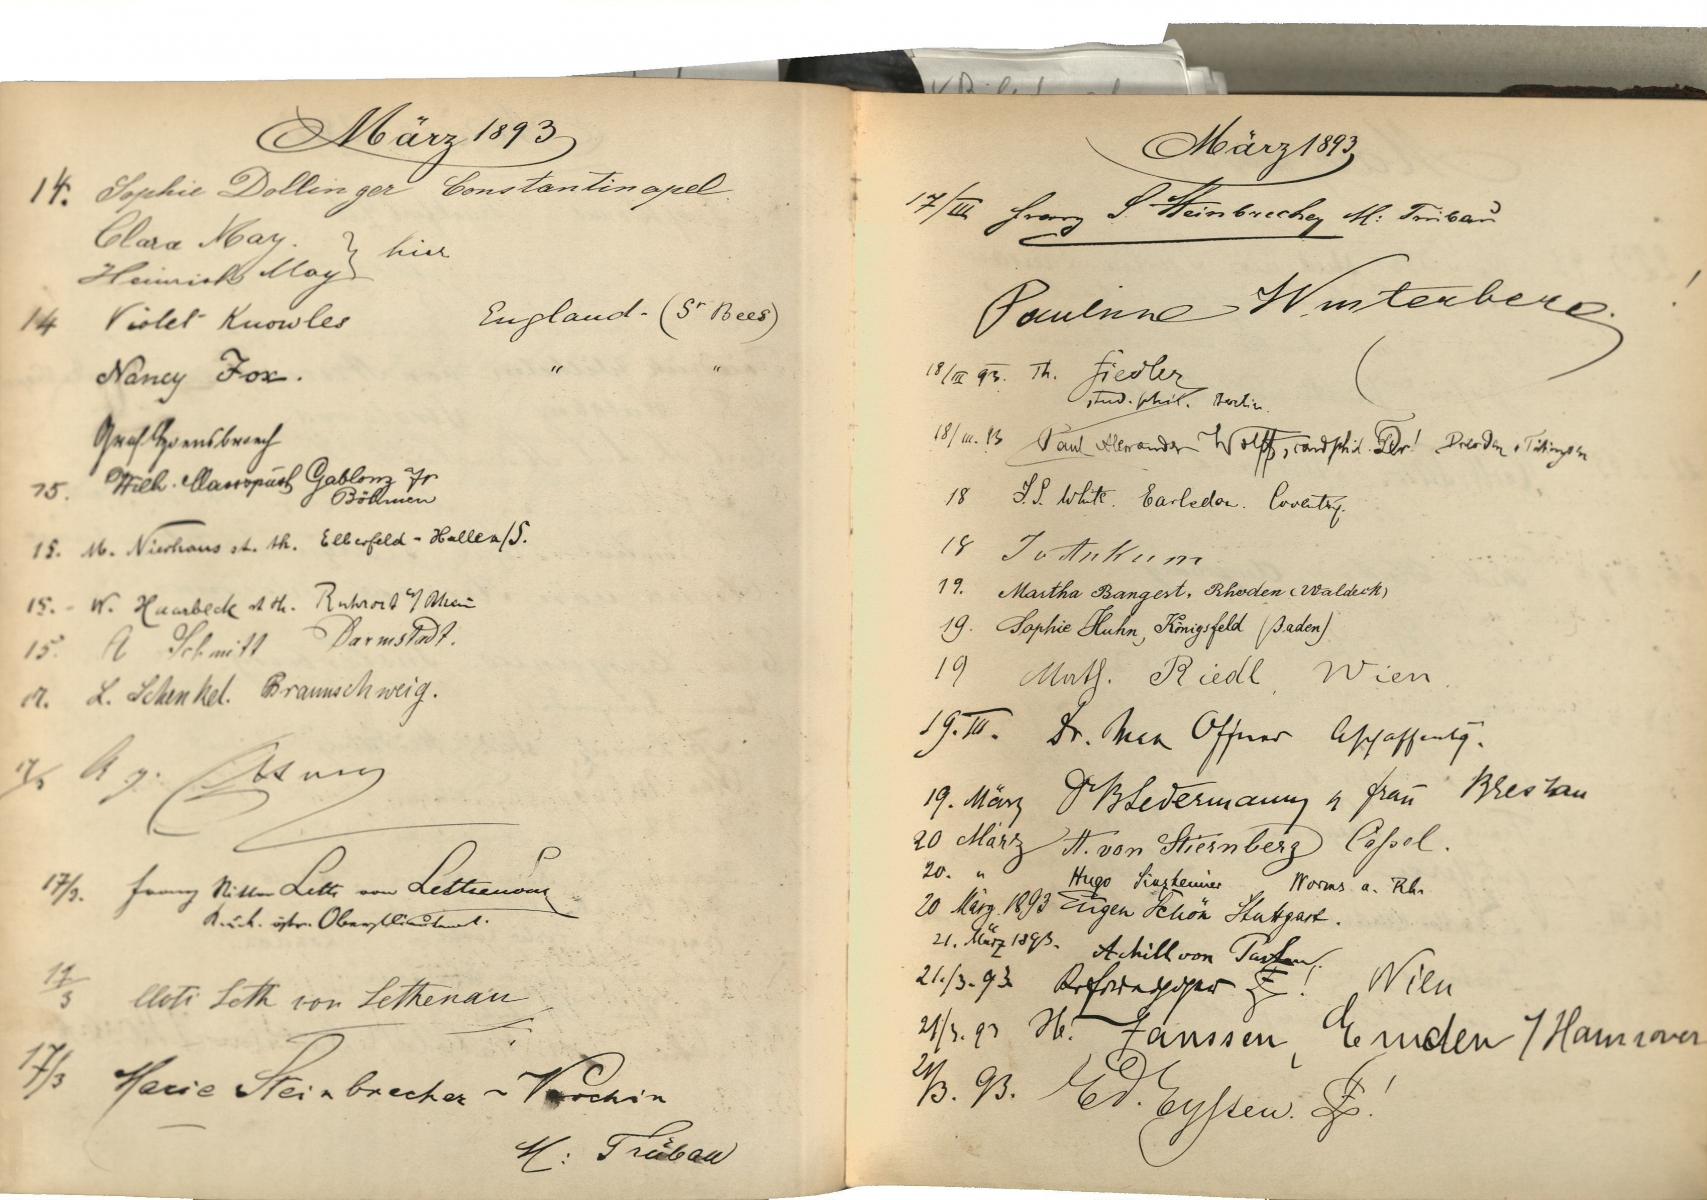 März 1893
14. Sophie Dollinger Constantinopel
Clara May.
Heinrich May } hier
14 Violet Knowles England - (St Bees)
Nancy Fox. " "
Graf Hoensbroech
15. Wilh. Massopust Gablonz
Böhmen
15. M. Nierhaus st. th. Elberfeld - Halle a/S.
15. - W. Haarbeck st. th. Ruhrort a/ Rhein
15. A Schmitt Darmstadt.
L. Schenkel. Braunschweig.
17/3. Franz Ritter Leth von Lethenau
K. u. k. Oberstlieutenant.
17/3 Leth von Lethenau
17/3 Marie Steinbrecher -
M: Trübau
März 1893
17/III Franz S. Steinbrecher M: Trübau
Pauline Winterberg. !
18/III 93. Th. Fiedler
stud. phil. Berlin.
18/III. 93 Paul Alexander Wolff, cand phil. Dresden, Tübingen
18 J.S. White. Earlsdon. Coventry.
18
19. Martha Bangert, Rhoden (Waldeck)
19. Sophie Huhn, Königsfeld (Baden)
19 Math. Riedl, Wien.
19. III. Dr. Max Offner Aschaffenbg.
19. März Dr B Ledermann u Frau Breslau
20 März A. von Stiernberg Cassel.
20. " Hugo Sinzheimer Worms a. Rh.
20 März 1893 Eugen Schön Stuttgart.
21. März 1893. Achill von
21./3. 93. ! Wien
21/3. 93 H. Janssen, Emden / Hannover
21/3. 93. Ed. Eyssen. !